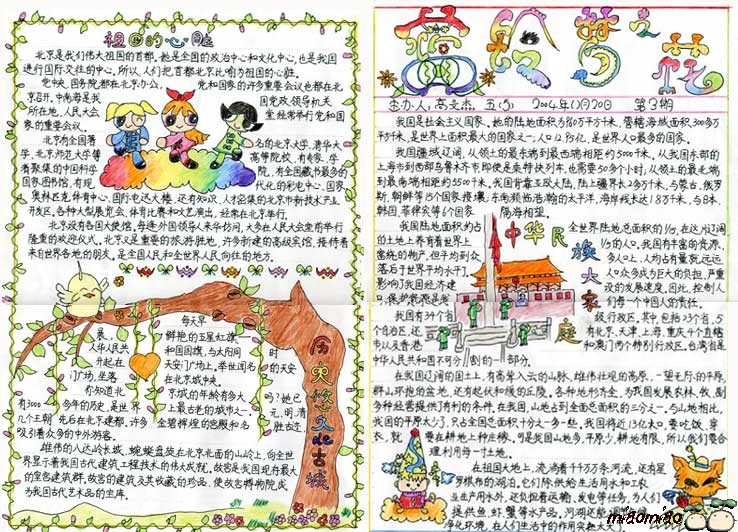 祖国的心脏
北京是我们伟大祖国的首都,她是全国的政治中心和文化中心,也是我国
进行国际交往的中心。所以,人们把首都北京比喻为祖国的心脏。
党中央、国务院都在北京办公,党和国家的许多重要会议也都在北
京召开。中南海是我国党政领导机关
所在地,人民大会堂经常举行党和国
家的重要会议。
北京有全国著名的北京大学、清华大
学、北京师范大学等高等院校,有专家、学
者聚集的中国科学院,有全国藏书最多的
国家图书馆,有现代化的彩电中心、国家
奥林匹克体育中心、国际电话大楼,还有知识、人才密集的北京市新技术产业
开发区。各种大型展览会、体育比赛和文艺演出,经常在北京举行。
北京设有各国大使馆。每逢外国领导人来华访问,大多在人民大会堂前举行
隆重的欢迎仪式。北京又是重要的旅游胜地,许多新建的高级宾馆,接待着
来自世界各地的朋友,是全国人民和全世界人民向往的地方。
历史悠久de古城
每天早晨,鲜艳的五星红旗
时
人华人民共和国国旗,与太阳同
升起在天安门广场上。举世闻名的天安
门广场,坐落在北京城中央。
你知道北京城的年龄有多大吗?她已
有3000多年的历史,是世界上最古老的城市之一。元、明、清
几个王朝先后在北京建都,许多金碧辉煌的宫殿和名胜古迹,
吸引着众多的中外游客。
雄伟的八达岭长城,蜿蜒盘旋在北京北面的山岭上,向全世
界显示着我国古代建筑工程技术的伟大成就。故宫是我国现存最大
的皇宫建筑群,故宫的建筑及其收藏的珍品,使故宫博物院成
为我国古代艺术品的宝库。
主办人:高文杰 五(5) 2004年11月20日 第3期
我国是社会主义国家。她的陆地面积为960万平方千米,管辖海域面积300多万
平方千米,是世界上面积最大的国家之一;人口12.95亿,是世界人口最多的国家。
我国疆域辽阔,从领土的最东端到最西端相距约5000千米。从我国东部的
上海市到西部乌鲁木齐市即使是乘特快列车,也需要50多个小时;从领土的最北端
到最南端相距约5500千米。我国背靠亚欧大陆,陆上疆界长2多万千米,与蒙古、俄罗
斯、朝鲜等15个国家接壤。东南濒临浩瀚的太平洋,海岸线长达1.8万千米,与日本、
韩国、菲律宾等6个国家隔海相望。
中华民族大家庭
我国陆地面积约占全世界陆地面积的1/15,在这片辽阔
的土地上养育着世界上1/5的人口。我国有丰富的资源,
但平均到众多人口上,人均占有量就远远
落后于世界平均水平。人口众多成为巨大的负担,严重
影响了我国经济建设的发展速度。因此,控制人
们每个中国人的责任。
我国有34个省级行政区。其中,包括23个省、5
个自治区,还有北京、天津、上海、重庆4个直辖
市以及香港和澳门两个特别行政区。台湾省是
中华人民共和国不可分割的一部分。
在我国辽阔的国土上,有高耸入云的山脉,雄伟壮观的高原,一望无际的平原,
群山环抱的盆地,还有起伏和缓的丘陵。各种地形齐全,为我国发展农、林、牧、副
多种经营提供了有利的条件。在我国,山地占到全国总面积的三分之一。与山地相比,
我国的平原太少了,只占全国总面积十分之一多一些。我国将近13亿人口,要吃饭、穿
衣,就要在耕地上种庄稼。可是我国山地多,平原少,耕地有限,所以我们要合
理利用每一寸土地。
在祖国大地上,流淌着千千万万条河流,还有星
罗棋布的湖泊。它们除供给生活用水和工农
业生产用水外,还负担着运输、发电等任务,为人们
提供鱼、虾、蟹等水产品。河湖还能
净化环境,在人们生活中的作用突出。
miaomiao